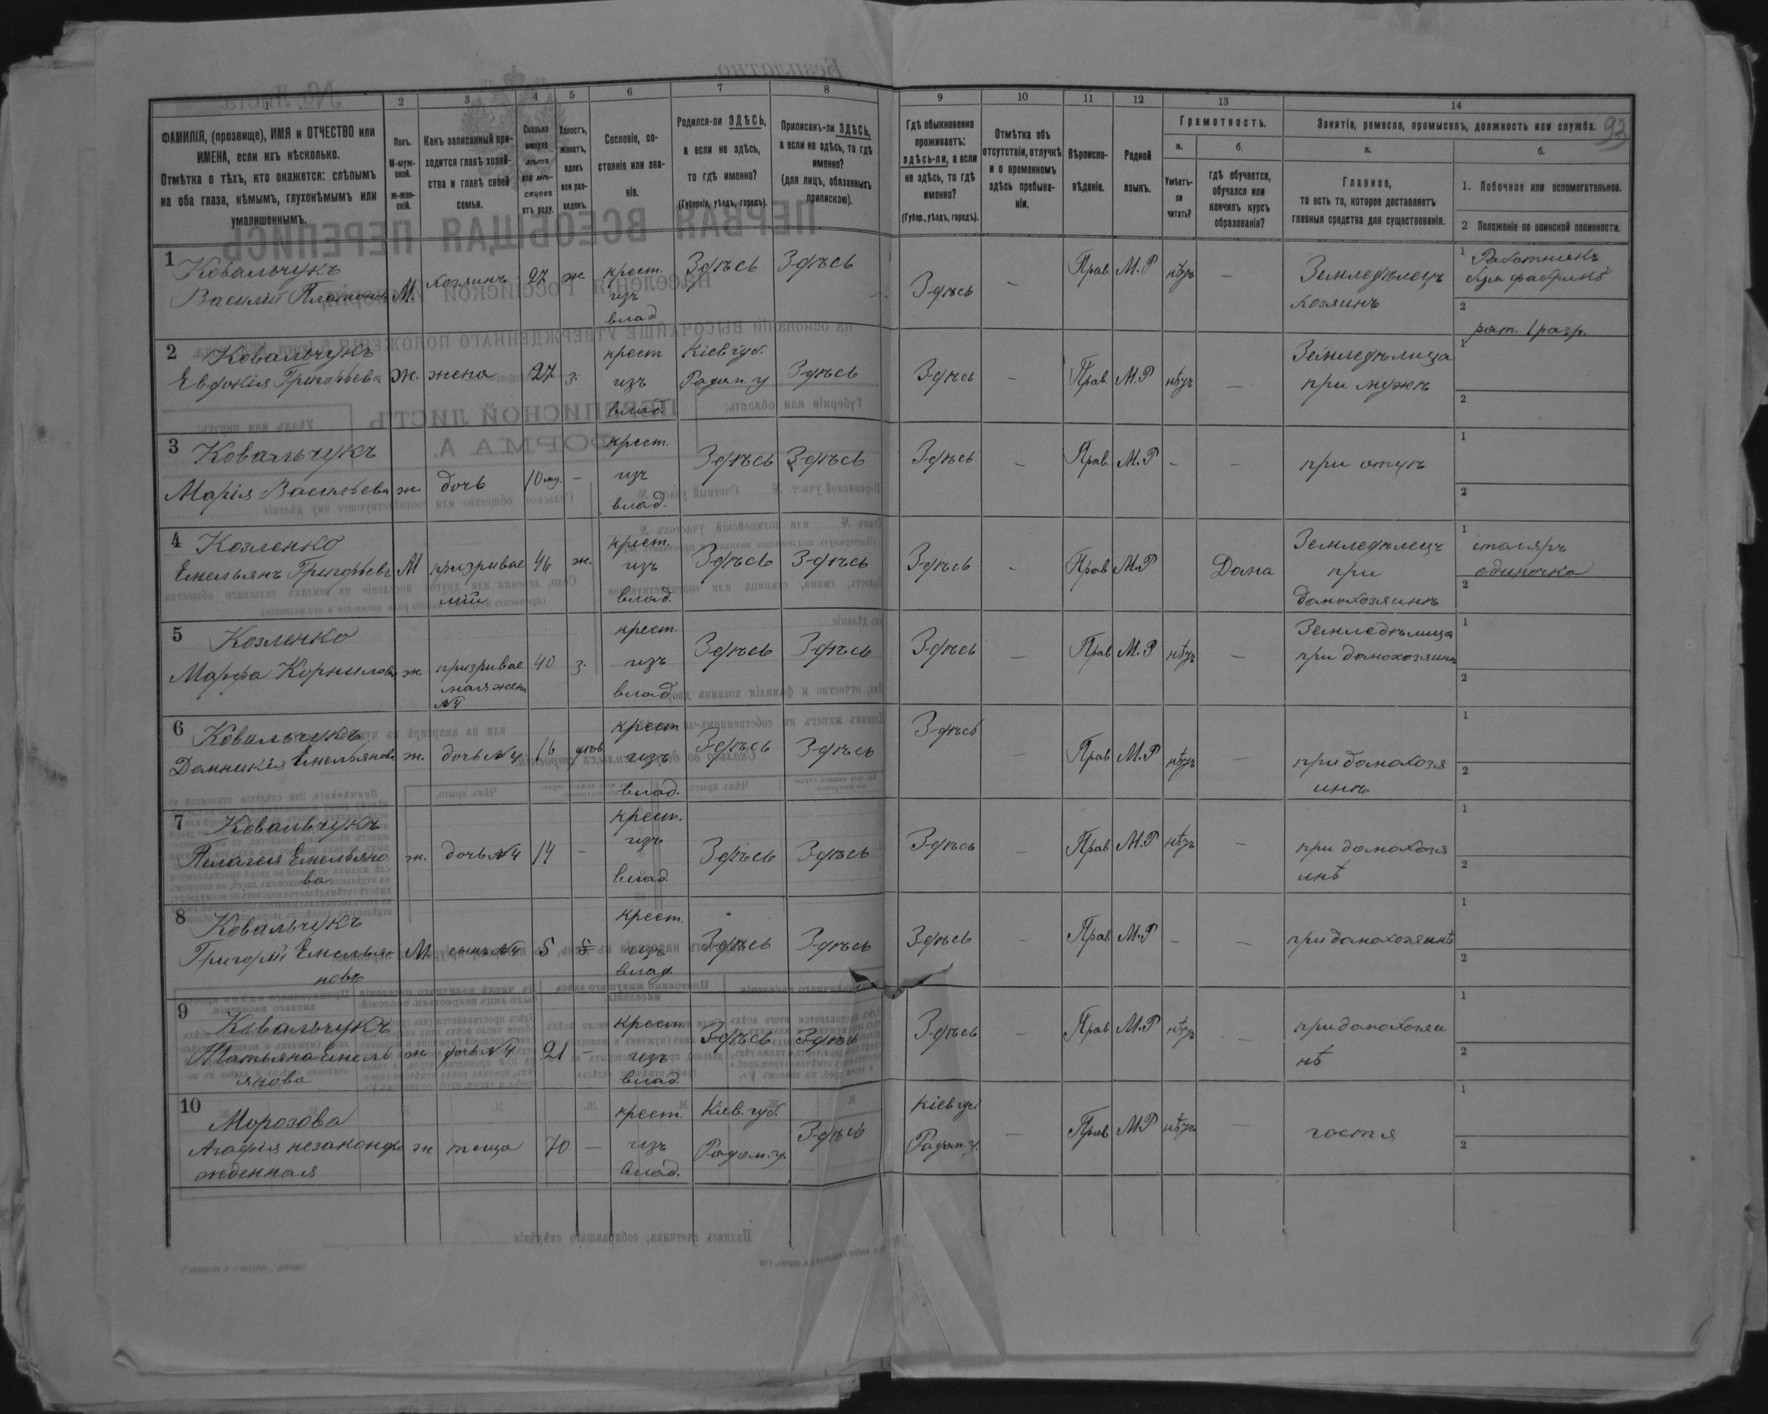 93
1 2 3 4 5 6 7 8 9 10 11 12 13 14
ФАМИЛІЯ, (прозвище), ИМЯ и ОТЧЕСТВО или
ИМЕНА, если ихъ нѣсколько.
Отмѣтка о тѣхъ, кто окажется: слѣпымъ
на оба глаза, нѣмымъ, глухонѣмымъ или
умалишеннымъ.
Полъ.
М-муж-
ской.
ж-жен-
скій.
Какъ записанный при-
ходится главѣ хозяй-
ства и главѣ своей
семьи.
Сколько
минуло
лѣтъ
или мѣ-
сяцевъ
отъ роду.
Холостъ,
женатъ,
вдовъ
или раз-
веденъ.
Сословіе, со-
стояніе или зва-
ніе.
Родился-ли ЗДѢСЬ,
а если не здѣсь,
то гдѣ именно?
(Губернія, уѣздъ, городъ).
Приписанъ-ли ЗДѢСЬ,
а если не здѣсь, то гдѣ
именно?
(для лицъ, обязанныхъ
припискою).
Гдѣ обыкновенно
проживаетъ:
здѣсь-ли, а если
не здѣсь, то гдѣ
именно?
(Губер., уѣздъ, городъ).
Отмѣтка объ
отсутствіи, отлучкѣ
и о временномъ
здѣсь пребыва-
ніи.
Вѣроиспо-
вѣданіе.
Родной
языкъ.
Грамотность.
а.
Умѣетъ-
ли
читать?
б.
гдѣ обучается,
обучался или
кончилъ курсъ
образованія?
Занятіе, ремесло, промыселъ, должность или служба.
а.
Главное,
то есть то, которое доставляетъ
главныя средства для существованія.
б.
1. Побочное или вспомогательное.
2 Положеніе по воинской повинности.
1 Ковальчукъ
Василій Платоновъ М. хозяинъ 27 ж.
крест.
изъ
влад
Здѣсь Здѣсь Здѣсь - Прав. М.Р нѣтъ -
Земледѣлецъ
хозяинъ
1 Работникъ
бум фабрикѣ
2
рат. 1 разр.
2 Ковальчукъ
Евдокія Григорьева ж. жена 27 з.
крест
изъ
влад.
Кіев губ.
Радом. у
Здѣсь Здѣсь - Прав. М.Р нѣтъ -
Земледѣлица
при мужѣ
1
2
3 Ковальчукъ
Марія Васильева ж дочь 10 мц. -
крест.
изъ
влад.
Здѣсь Здѣсь Здѣсь - Прав. М.Р - -
при отцѣ
1
2
4 Козленко
Емельянъ Григорьевъ М призривае
мый
46 ж.
крест.
изъ
влад.
Здѣсь Здѣсь Здѣсь - Прав М.Р Дома
Земледѣлецъ
при
домохозяинѣ
1 столяръ
одиночка
2
5 Козленко
Марфа Корнилова ж призривае
мая жена
№4
40 з.
крест.
изъ
влад.
Здѣсь Здѣсь Здѣсь - Прав М.Р нѣтъ -
Земледѣлица
при домохозяинѣ
1
2
6 Ковальчукъ
Домникія Емельянова ж. дочь №4 16
крест
изъ
влад.
Здѣсь Здѣсь Здѣсь - Прав М.Р нѣтъ -
при домохозя
инѣ
1
2
7 Ковальчукъ
Пелагея Емельяно
ва
ж. дочь №4 14 -
крест.
изъ
влад
Здѣсь Здѣсь Здѣсь - Прав М.Р нѣтъ -
при домохозя
инѣ
1
2
8 Ковальчукъ
Григорій Емелья
новъ
М. сынъ №4 5
крест.
изъ
влад
Здѣсь Здѣсь Здѣсь - Прав М.Р - -
при домохозяинѣ
1
2
9 Ковальчукъ
Татьяна Емель
янова
ж дочь №4 21 -
крест.
изъ
влад.
Здѣсь Здѣсь Здѣсь - Прав М.Р нѣтъ -
при домохозяи
нѣ
1
2
10 Морозова
Агафія незаконоро
жденная
ж теща 70 -
крест.
изъ
влад.
Кіев. губ.
Радом. у.
Здѣсь
Кіев губ
Радом. у.
- Прав М.Р нѣтъ -
гостя
1
2